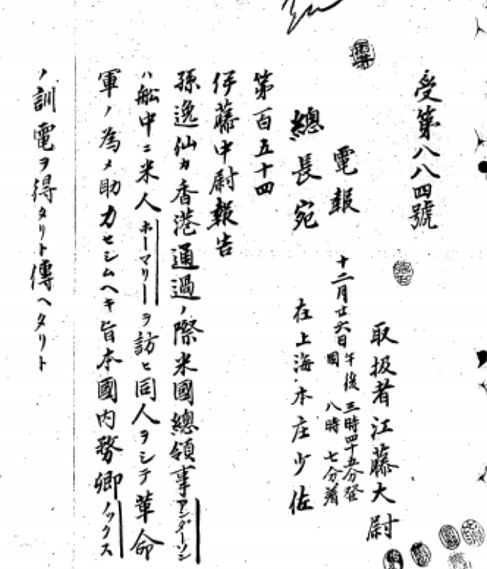 受第八八四號
取扱者江藤大尉
電報
十二月廿六日午後三時四十五分發
同 八時七分着
總長宛
在上海本庄少佐
第百五十四
伊藤中尉報告
孫逸仙カ香港通過ノ際米國總領事アンダーソン
ハ船中ニ米人ホーマリーヲ訪ヒ同人ヲシテ革命
軍ノ為メ助力セシムヘキ旨本國内務卿ノックス
ノ訓電ヲ得タリト傳ヘタリト